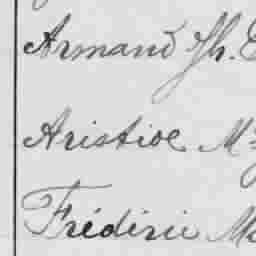 Armand Th.
Aristide M
Frédéric Ma